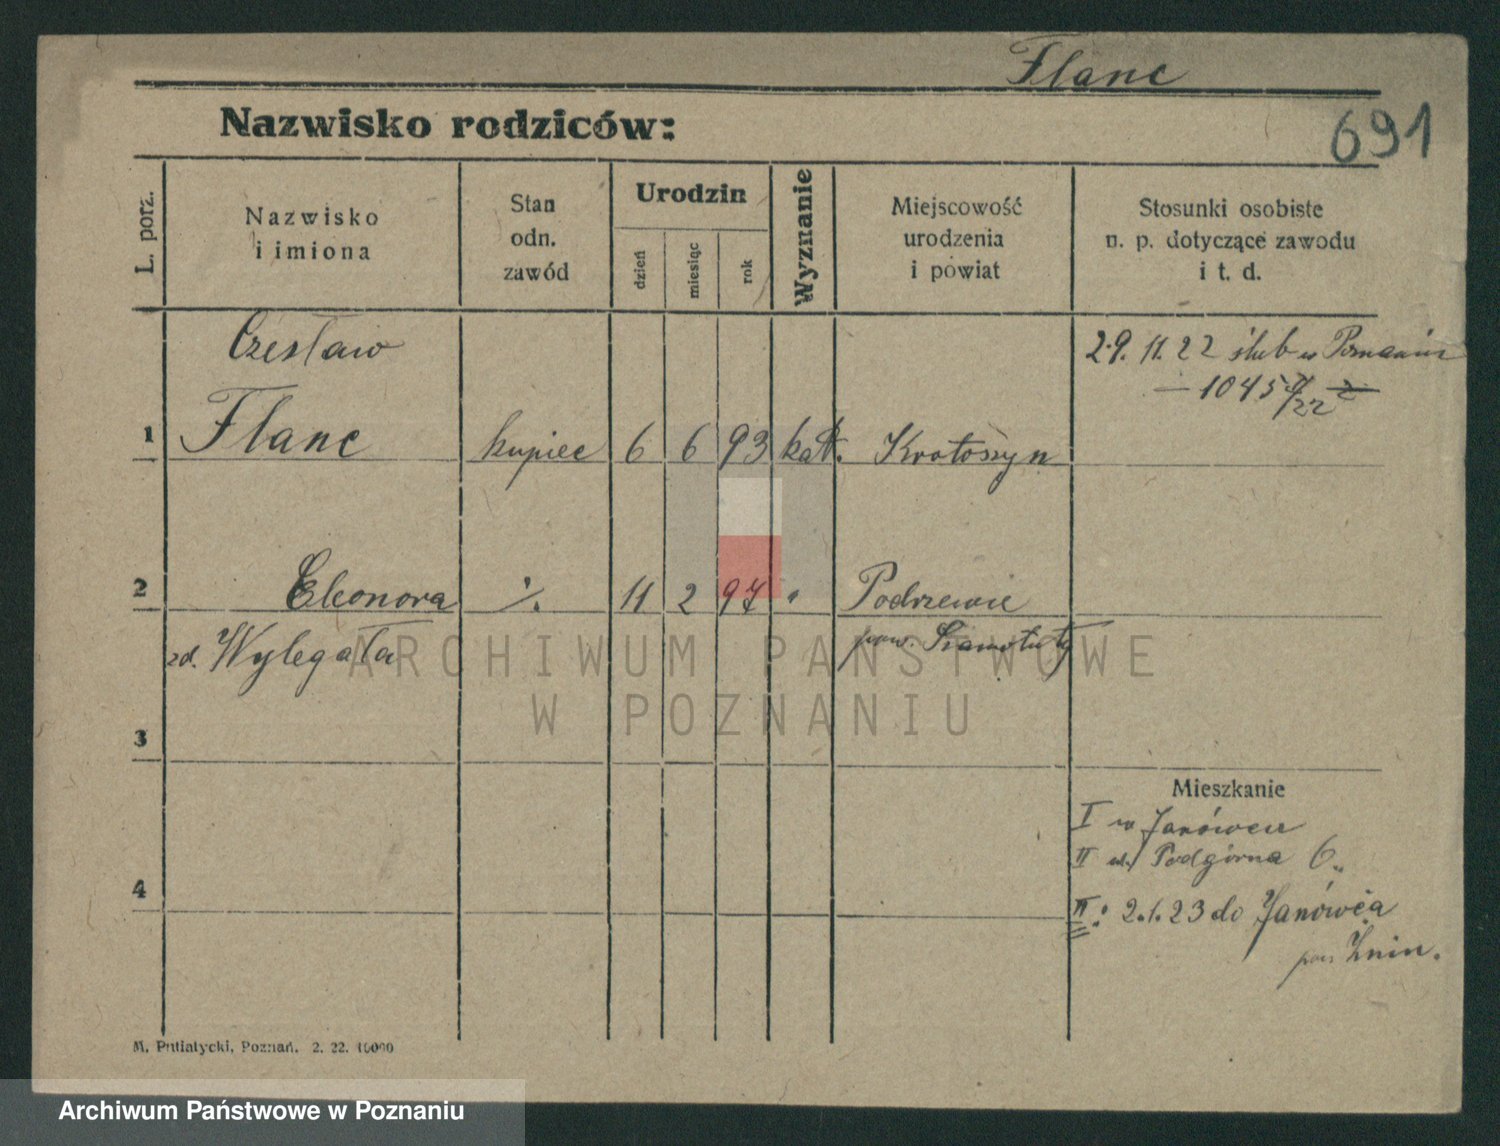 Flanc
Nazwisko rodziców:
691
L. porz.
Nazwisko
i imiona
Stan
odn.
zawód
Urodzin
dzień
miesiąc
rok
Wyznanie
Miejscowość
urodzenia
i powiat
Stosunki osobiste
n. p. dotyczące zawodu
i t. d.
Czesław
29. 11. 22 ślub w Poznaniu
— 1045
1 Flanc kupiec 6 6 93 kat. Krotoszyn
2 Eleonora ./. 11 2 97 " Podrzewie
zd. Wylegała pow. Szamotuły
ARCHIWUM PAŃSTWOWE
W POZNANIU
3
Mieszkanie
I w Janówcu
II ul. Podgórna 6.
4
2.1.23 do Janówca
pow. Żnin.
M. Putiatycki, Poznań. 2. 22. 10000
Archiwum Państwowe w Poznaniu